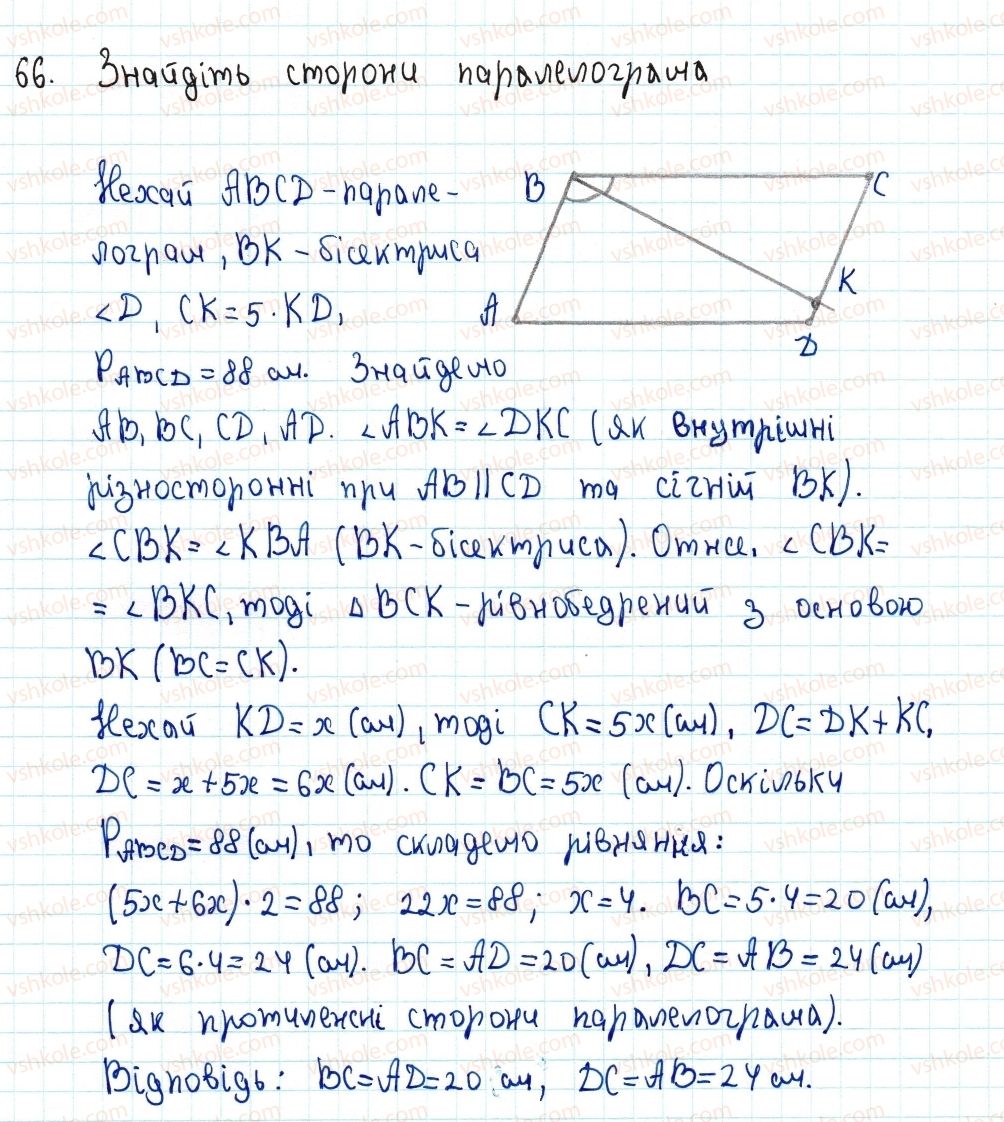 66. Знайдіть сторони паралелограма
Нехай ABCD - парале-
лограм, BK - бісектриса
∠D, CK = 5 · KD,
P ABCD = 88 см. Знайдемо
AB, BC, CD, AD. ∠ABK = ∠DKC (як внутрішні
різносторонні при AB || CD та січній BK).
∠CBK = ∠KBA (BK - бісектриса). Отже, ∠CBK =
= ∠BKC, тоді △BCK - рівнобедрений з основою
BK (BC = CK).
Нехай KD = x (см), тоді CK = 5x (см), DC = DK + KC,
DC = x + 5x = 6x (см). CK = BC = 5x (см). Оскільки
P ABCD = 88 (см), то складемо рівняння:
(5x + 6x) · 2 = 88; 22x = 88; x = 4. BC = 5 · 4 = 20 (см),
DC = 6 · 4 = 24 (см). BC = AD = 20 (см), DC = AB = 24 (см)
(як протилежні сторони паралелограма).
Відповідь: BC = AD = 20 см; DC = AB = 24 см.
B
C
A
K
D
vshkole.com